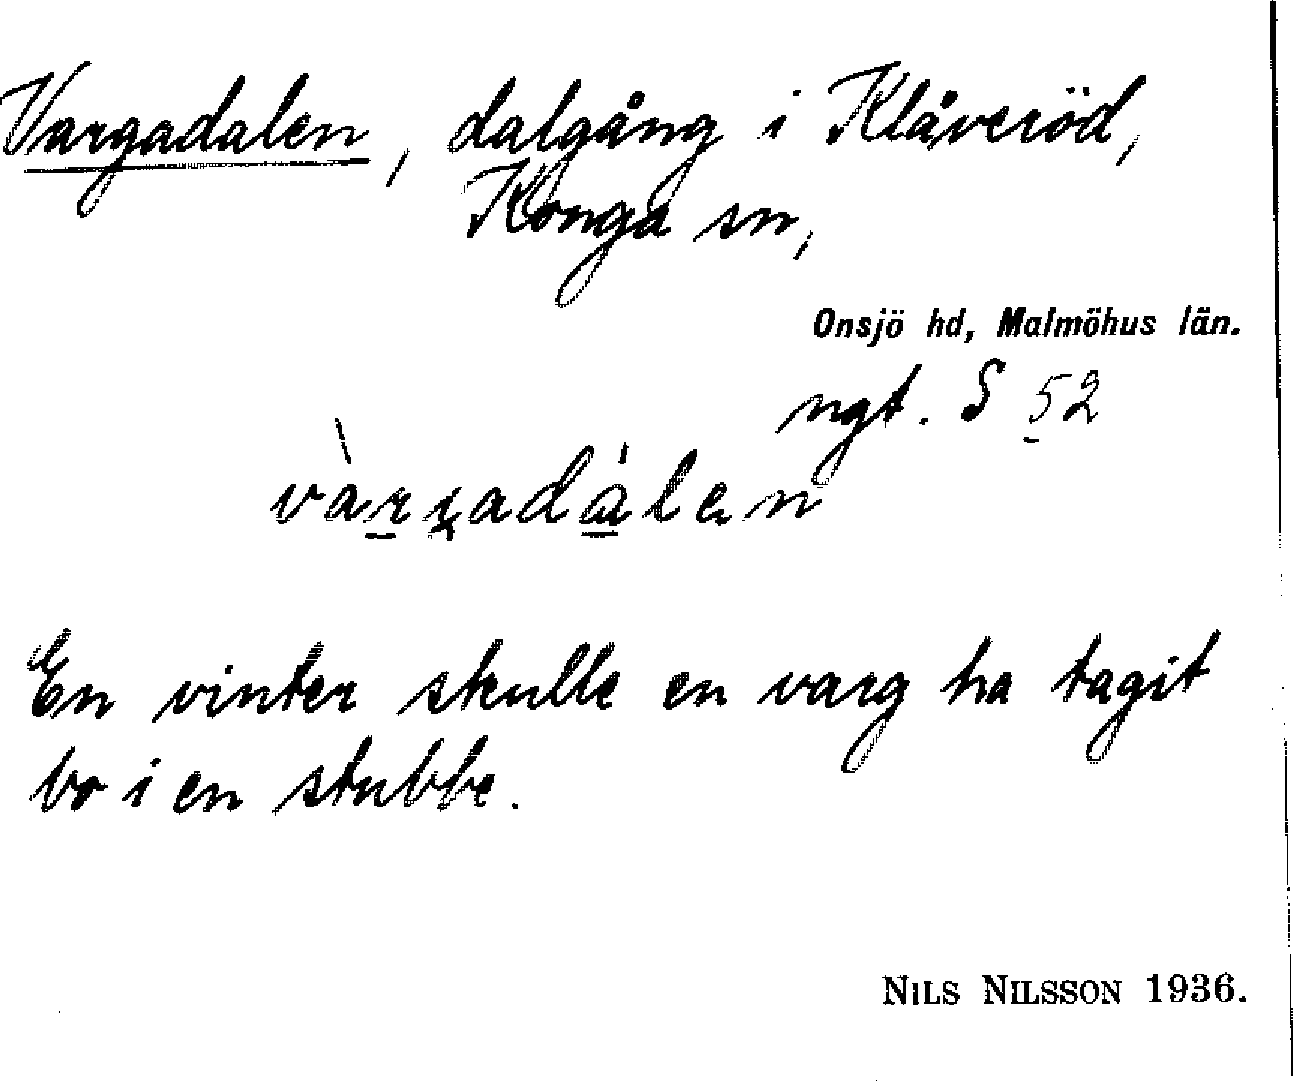 Vargadalen, dalgång i Klåveröd,
Konga sn,
Onsjö hd, Malmöhus län.
ngt. S 52
vàrgadálen
En vinter skulle en varg ha tagit
bo i en stubbe.
NILS NILSSON 1936.